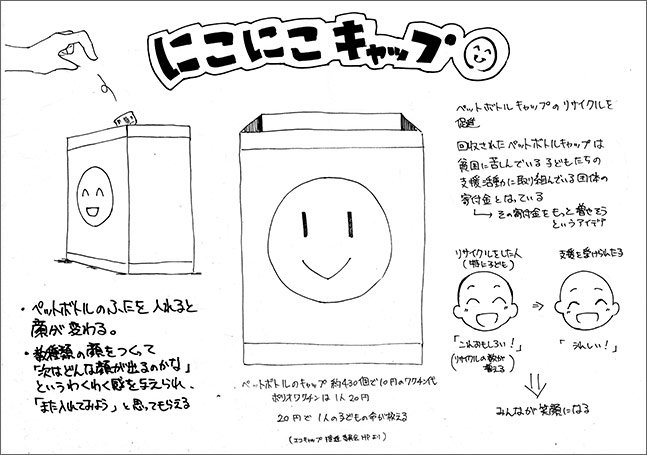 にこにこキャップ
ペットボトルキャップのリサイクルを
促進
回収されたペットボトルキャップは
貧困に苦しんでいる子どもたちの
支援活動に取り組んでいる団体の
寄付金となっている
→その寄付金をもっと増やそう
というアイデア
リサイクルをした人
(特に子ども)
支援を受けられたる
⇒
「これおもしろい!」
(リサイクルの数が
増える)
「うれしい!」
みんなが笑顔になる
・ペットボトルのふたを入れると
顔が変わる。
・数種類の顔をつくって
「次はどんな顔が出るのかな」
というわくわく感を与えられ、
「また入れてみよう」と思ってもらえる
ペットボトルのキャップ 約430個で10円のワクチン代
ポリオワクチンは1人20円
20円で1人の子どもの命が救える
(エコキャップ推進委員会HPより)